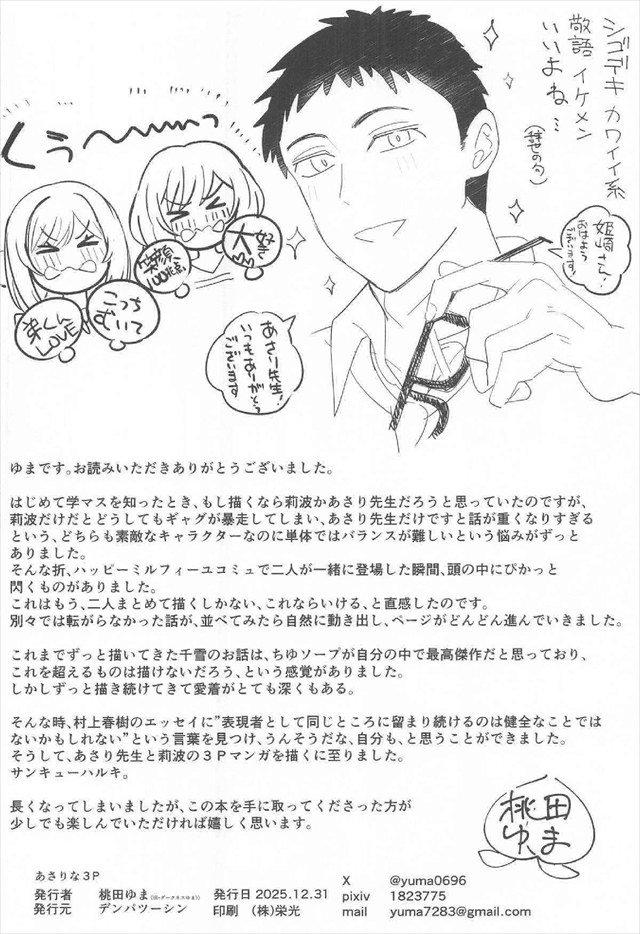 シゴデキ カワイイ系
敬語 イケメン
いいよね…
(拝せの勺)
くぅ〜〜〜っ
姫崎さん!
おはよう
ございます!
大好き
笑顔
100兆点
こっち
むいて
弟くん
LOVE
あさり先生!
いつもありがとう
ございます
ゆまです。お読みいただきありがとうございました。
はじめて学マスを知ったとき、もし描くなら莉波かあさり先生だろうと思っていたのですが、
莉波だけだとどうしてもギャグが暴走してしまい、あさり先生だけですと話が重くなりすぎる
という、どちらも素敵なキャラクターなのに単体ではバランスが難しいという悩みがずっと
ありました。
そんな折、ハッピーミルフィーユコミュで二人が一緒に登場した瞬間、頭の中にぴかっと
閃くものがありました。
これはもう、二人まとめて描くしかない、これならいける、と直感したのです。
別々では転がらなかった話が、並べてみたら自然に動き出し、ページがどんどん進んでいきました。
これまでずっと描いてきた千雪のお話は、ちゆソープが自分の中で最高傑作だと思っており、
これを超えるものは描けないだろう、という感覚がありました。
しかしずっと描き続けてきて愛着がとても深くもある。
そんな時、村上春樹のエッセイに”表現者として同じところに留まり続けるのは健全なことでは
ないかもしれない”という言葉を見つけ、うんそうだな、自分も、と思うことができました。
そうして、あさり先生と莉波の3Pマンガを描くに至りました。
サンキューハルキ。
長くなってしまいましたが、この本を手に取ってくださった方が
少しでも楽しんでいただければ嬉しく思います。
桃田
ゆま
あさりな3P
発行者 桃田ゆま(旧・ダークネスゆま) 発行日 2025.12.31
発行元 デンパツーシン 印刷 (株)栄光
X @yuma0696
pixiv 1823775
mail yuma7283@gmail.com